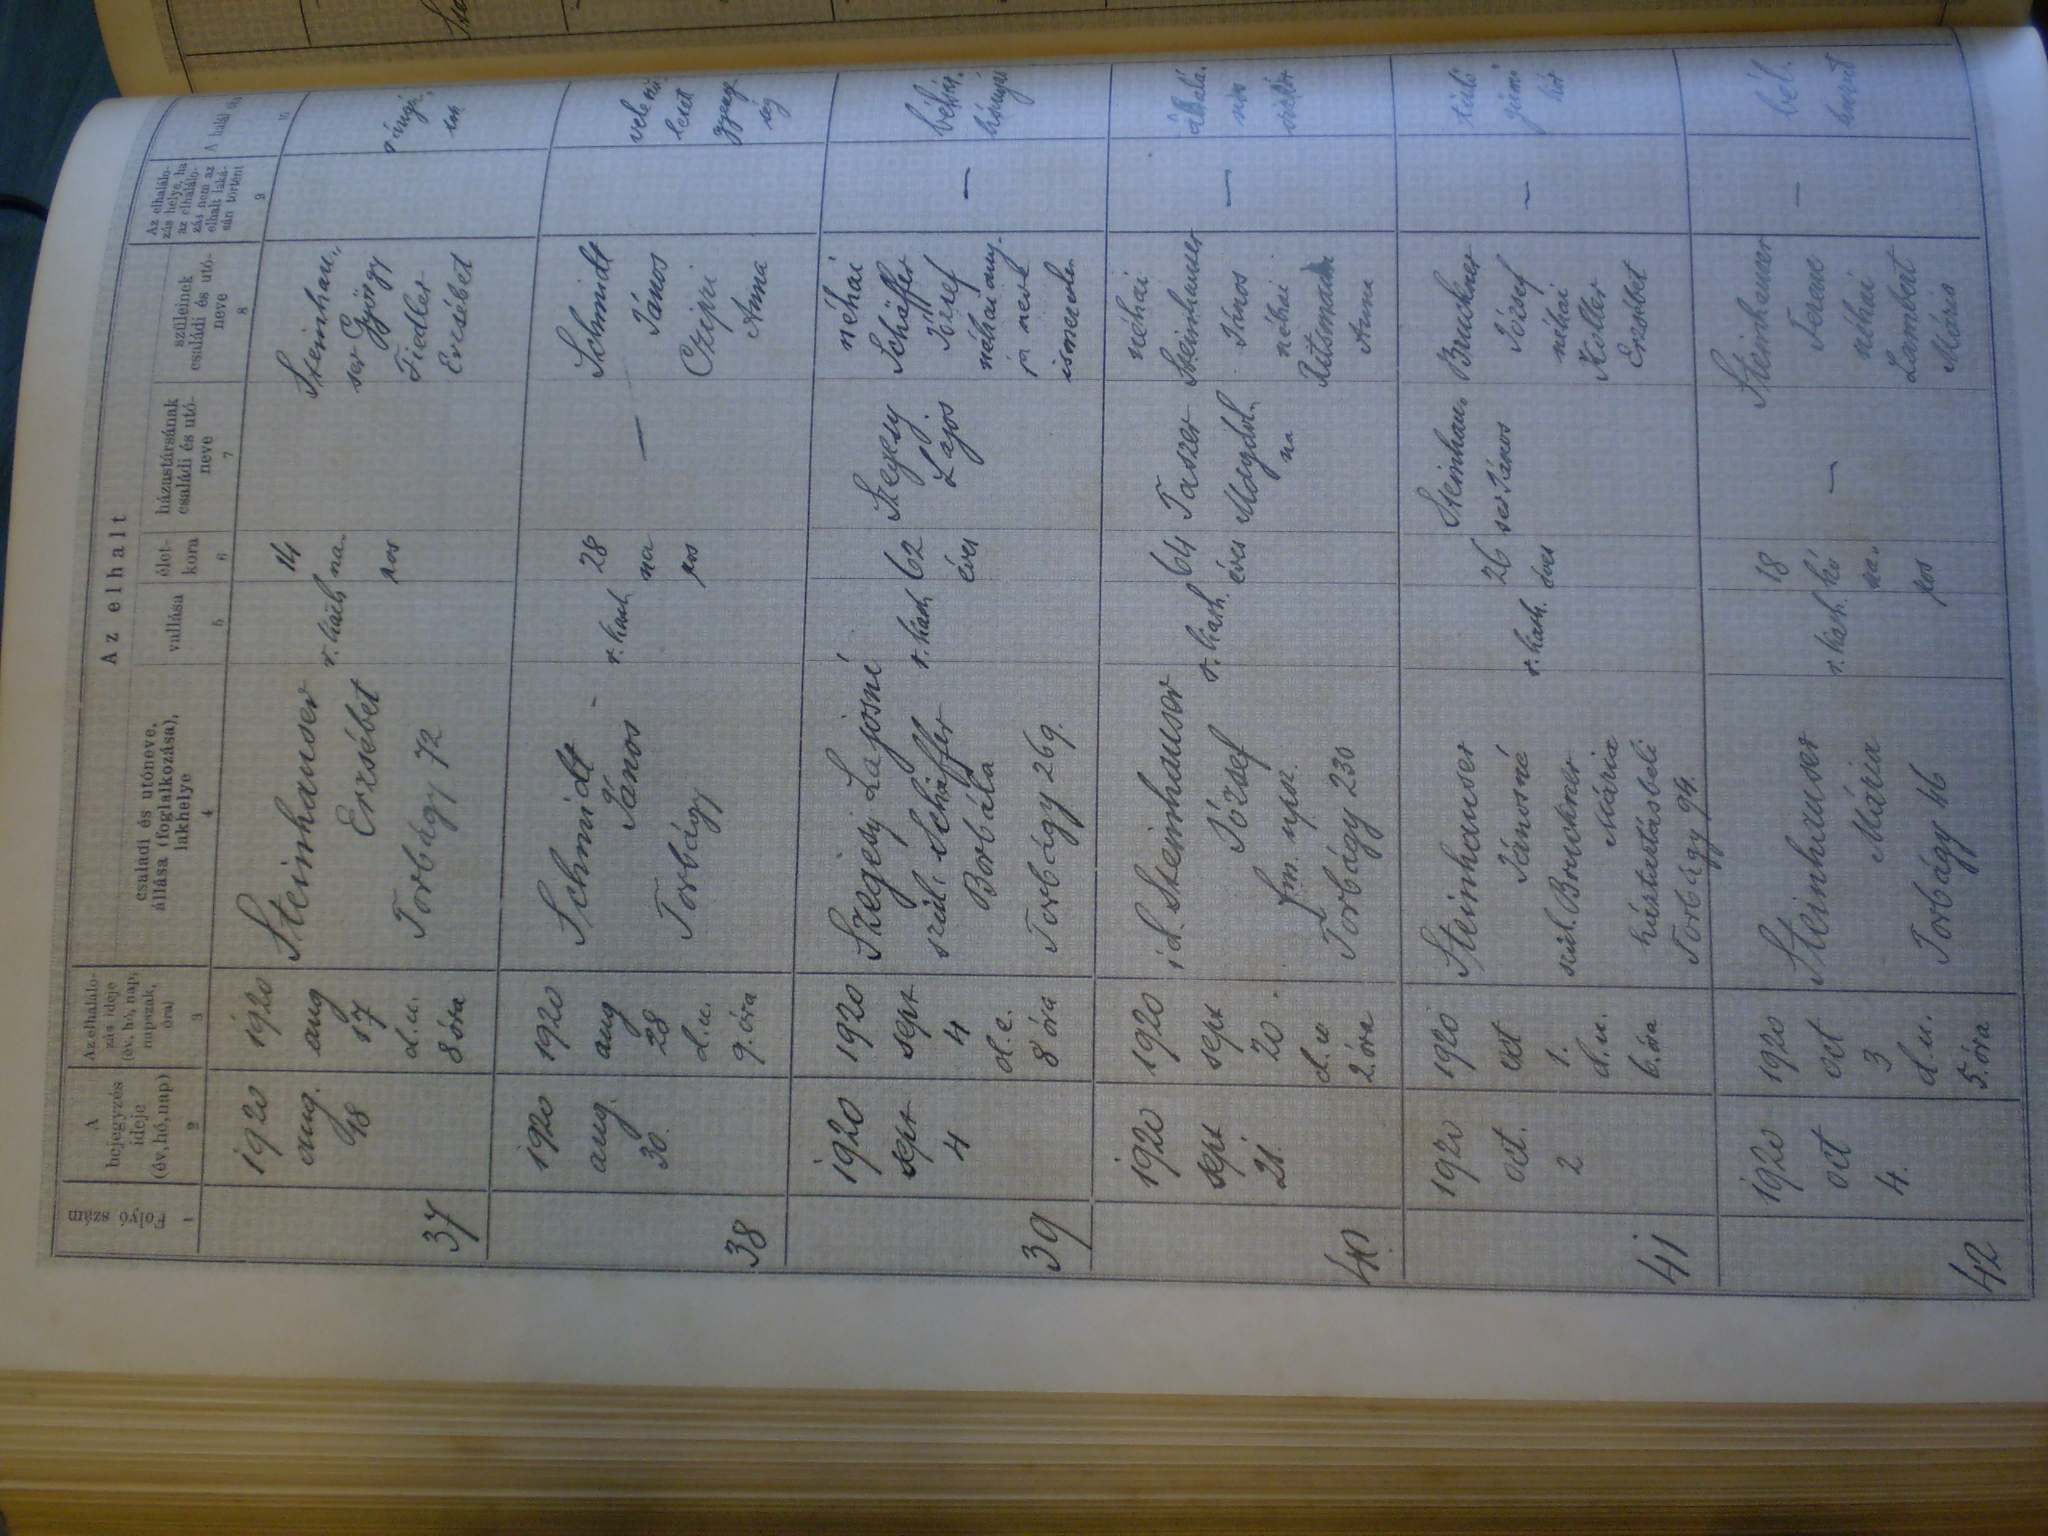 Az elhalt
Folyó szám
A bejegyzés ideje (év, hó, nap)
Az elhalálozás ideje (év, hó, nap, napszak, óra)
családi és utóneve, állása (foglalkozása), lakhelye
vallása
életkora
házastársának családi és utóneve
szüleinek családi és utóneve
Az elhalálozás helye, ha az elhalálozás nem az elhalt lakásán történt
A halál
1 2 3 4 5 6 7 8 9 10
37
1920
aug.
18
1920
aug
17
d.u.
8 óra
Steinhauser
Erzsébet
Torbágy 72
r. kath
14
na-
pos
Steinhau-
ser György
Fiedler
Erzsébet
38
1920
aug.
30.
1920
aug
28
d.u.
9. óra
Schmidt
János -
Torbágy
r. kath
28
na
pos
—
Schmidt
János
Czipri
Anna
vele szü
letet
gyeng
ség
39
1920
sept
4
1920
sept
4
d.e.
8 óra
Szegedy Lajosné
szül. Schäffer
Borbála
Torbágy 269.
r. kath
62
éves
Lajos
néhai
Schäffer
József
néhai any-
ja neve
ismeretlen
—
40
1920
sept
21.
1920
sept
20.
d.u.
2. óra
id. Steinhauser
József
fm. npsz.
Torbágy 230
r. kath.
64
éves
Taszer
Magdol-
na
néhai
Steinhauser
János
néhai
Anna
—
41
1920
oct.
2
1920
oct
1.
d.u.
6. óra
Steinhauser
Jánosné
szül. Bruckner
Mária
háztartásbeli
Torbágy 94.
r. kath.
26
éves
Steinhau-
ser János
Bruckner
József
néhai
Koller
Erzsébet
—
tüdő
gümő
kór
42
1920
oct
4.
1920
oct
3
d.u.
5. óra
Steinhauser
Mária
Torbágy 46
r. kath.
18
hó
na-
pos
—
Steinhauser
Ferenc
néhai
Lambert
Mária
—
bél-
hurut